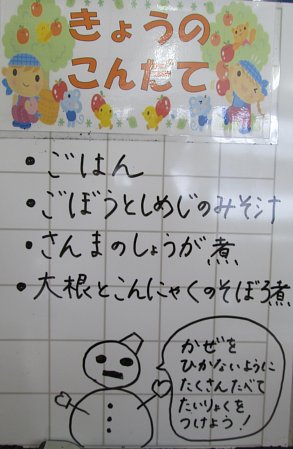 きょうの
こんだて
・ごはん
・ごぼうとしめじのみそ汁
・さんまのしょうが煮
・大根とこんにゃくのそぼろ煮
かぜを
ひかないように
たくさんたべて
たいりょくを
つけよう!